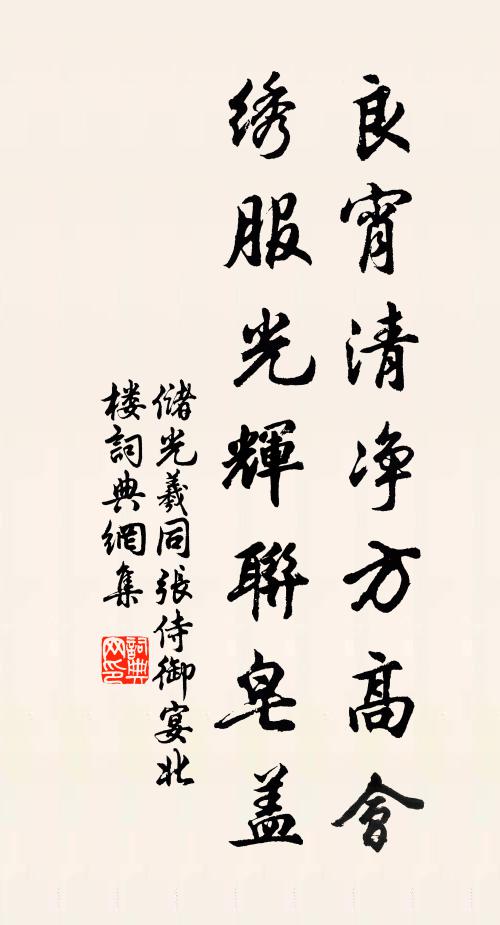 良宵清净方高會
绣服光輝聯皂盖
儲光羲同張侍御宴北
楼詞典網集
詞典
网印